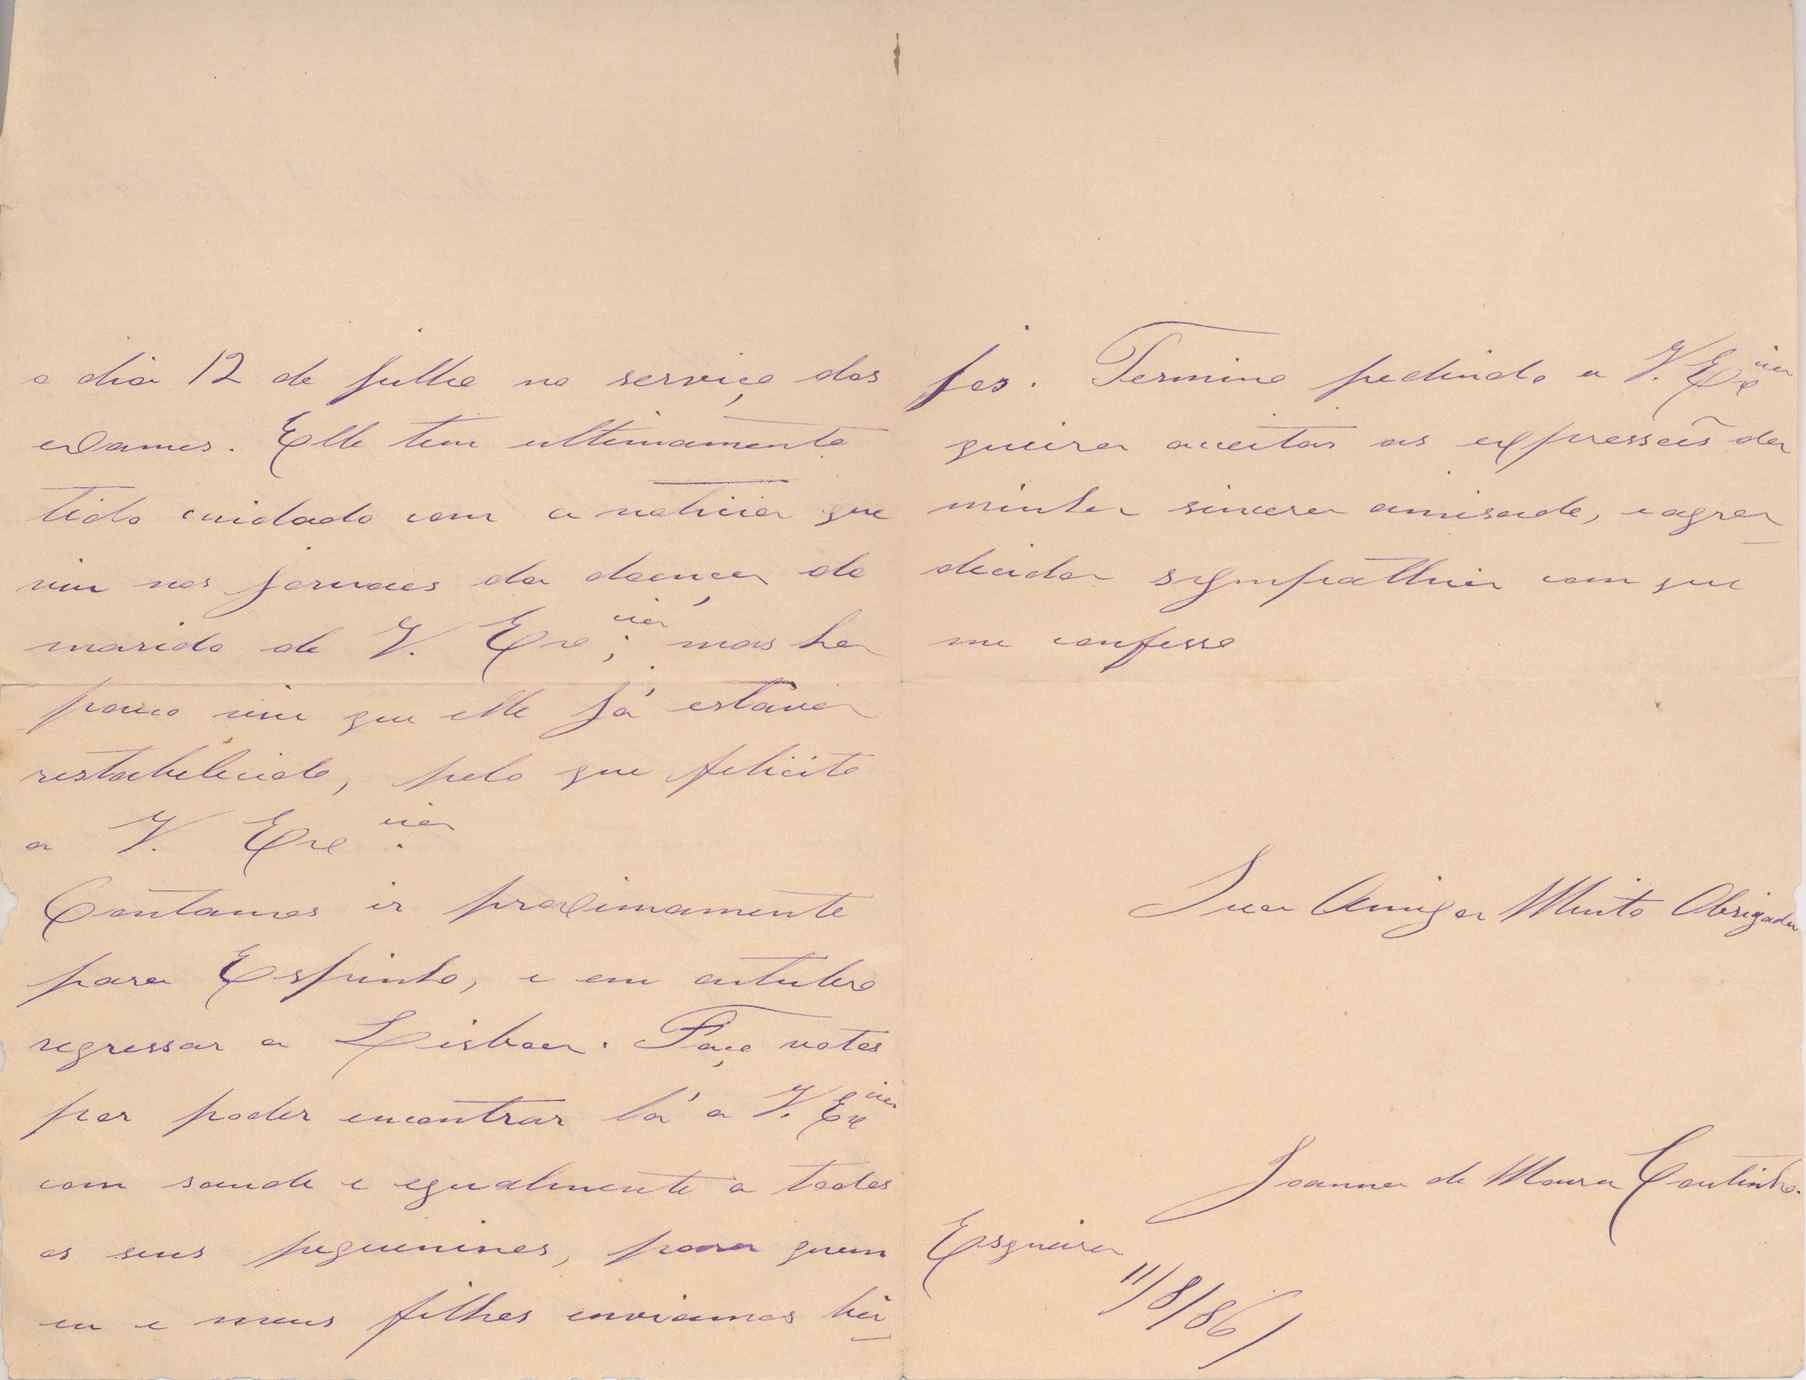 o dia 12 de julho no serviço dos
exames. Elle tem ultimamente
tido cuidado com a noticia que
viu nos jornaes da doença do
marido de V. Ex.cia; mas ha
pouco viu que elle já estava
restabelecido, pelo que felicito
a V. Ex.cia
Contamos ir proximamente
para Espinho, e em outubro
regressar a Lisboa. Faço votos
por poder encontrar lá a V. Ex.cia
com saude e egualmente a todos
os seus pequeninos, para quem
eu e meus filhos enviamos bei-
jos. Termino pedindo a V. Ex.cia
queira aceitar as expressões da
minha sincera amisade, e agra-
decida sympathia com que
me confesso
Sua Amiga Muito Obrigada
Joanna de Moura Coutinho.
Esgueira
11/8/86/